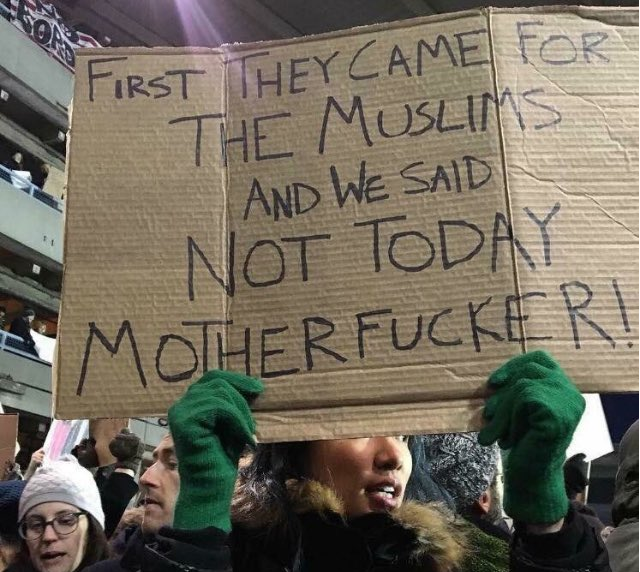 FIRST THEY CAME FOR
THE MUSLIMS
AND WE SAID
NOT TODAY
MOTHERFUCKER!